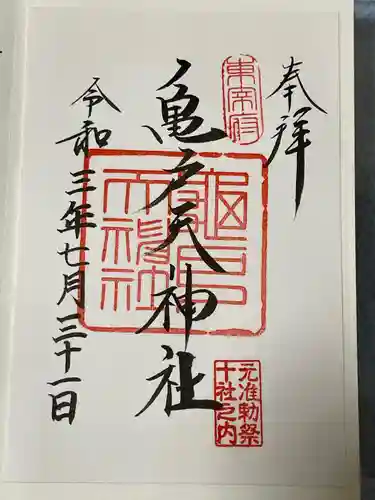 奉拝
東宰府
亀戸天神社
亀戸天神社
元准勅祭
十社之内
令和三年七月三十一日